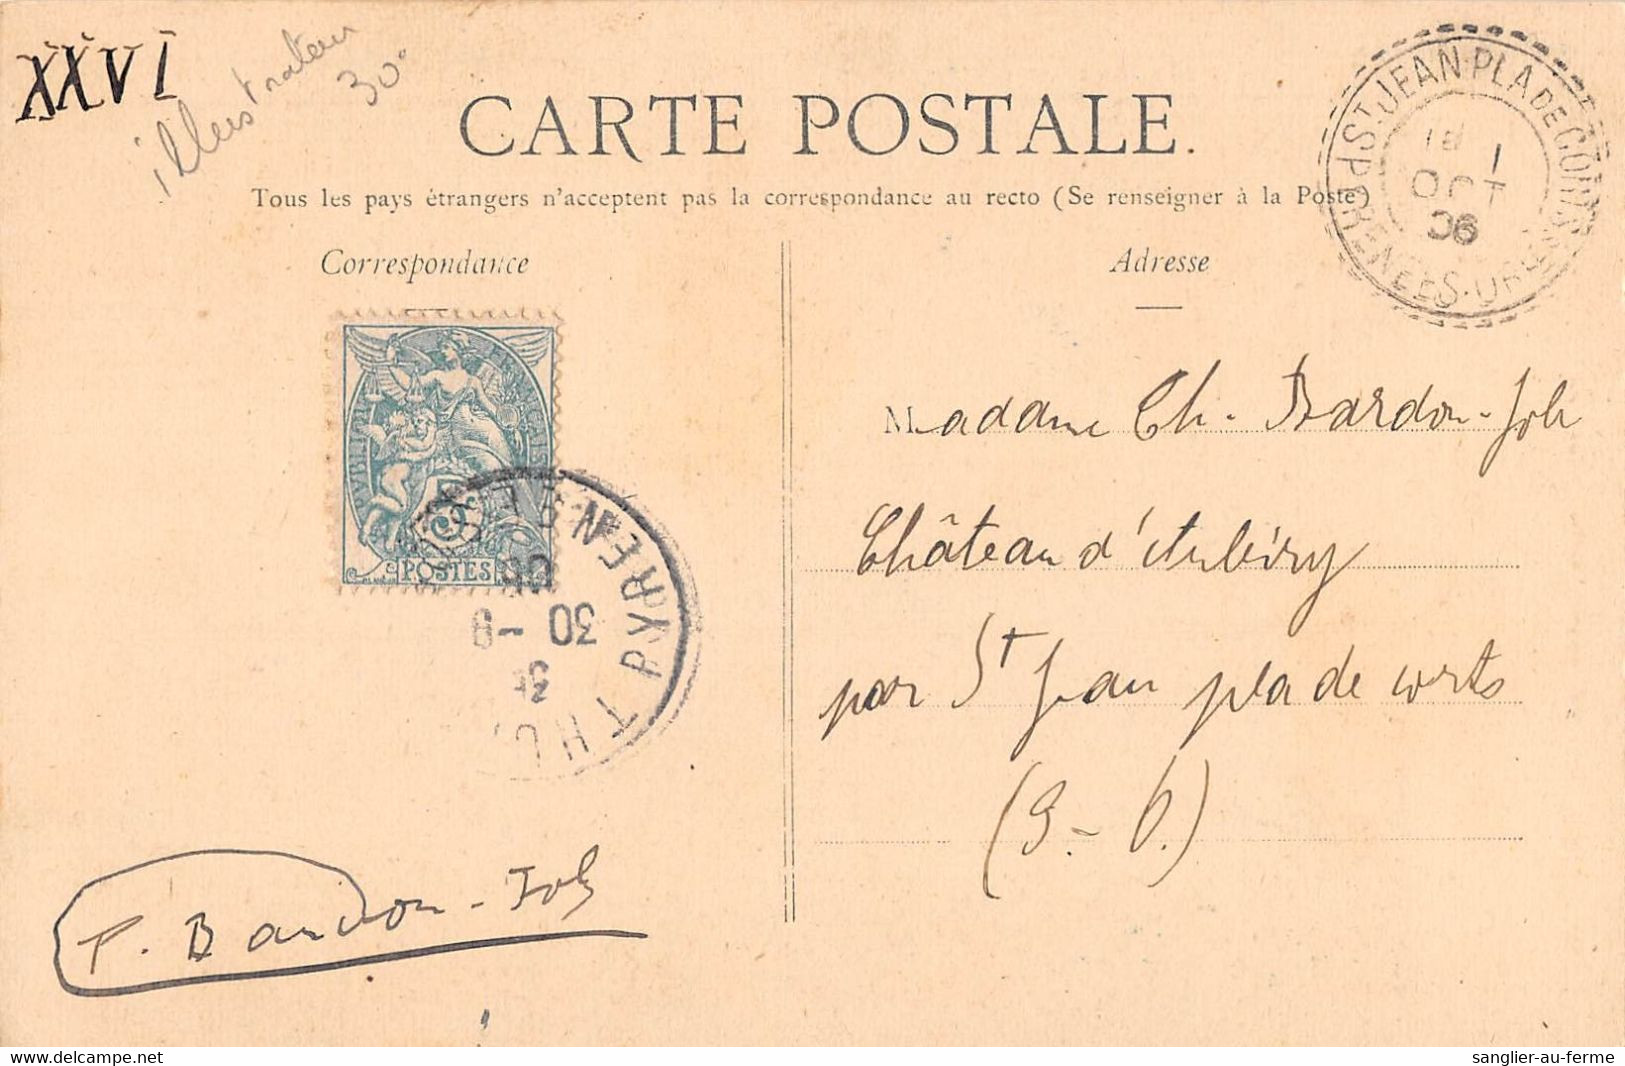 XXVI
illustrateur
30°
CARTE POSTALE.
Tous les pays étrangers n'acceptent pas la correspondance au recto (Se renseigner à la Poste)
ST JEAN-PLA DE CORTS
PYRÉNÉES-ORIES
1
OCT
06
Correspondance
Adresse
RÉPUBLIQUE FRANÇAISE
5c
POSTES
30 -9
06
PYREN
Madame Ch. Bardou-Job
Château d'Aubiry
par St Jean pla de corts
(P.-O.)
P. Bardou-Job
delcampe.net
sanglier-au-ferme